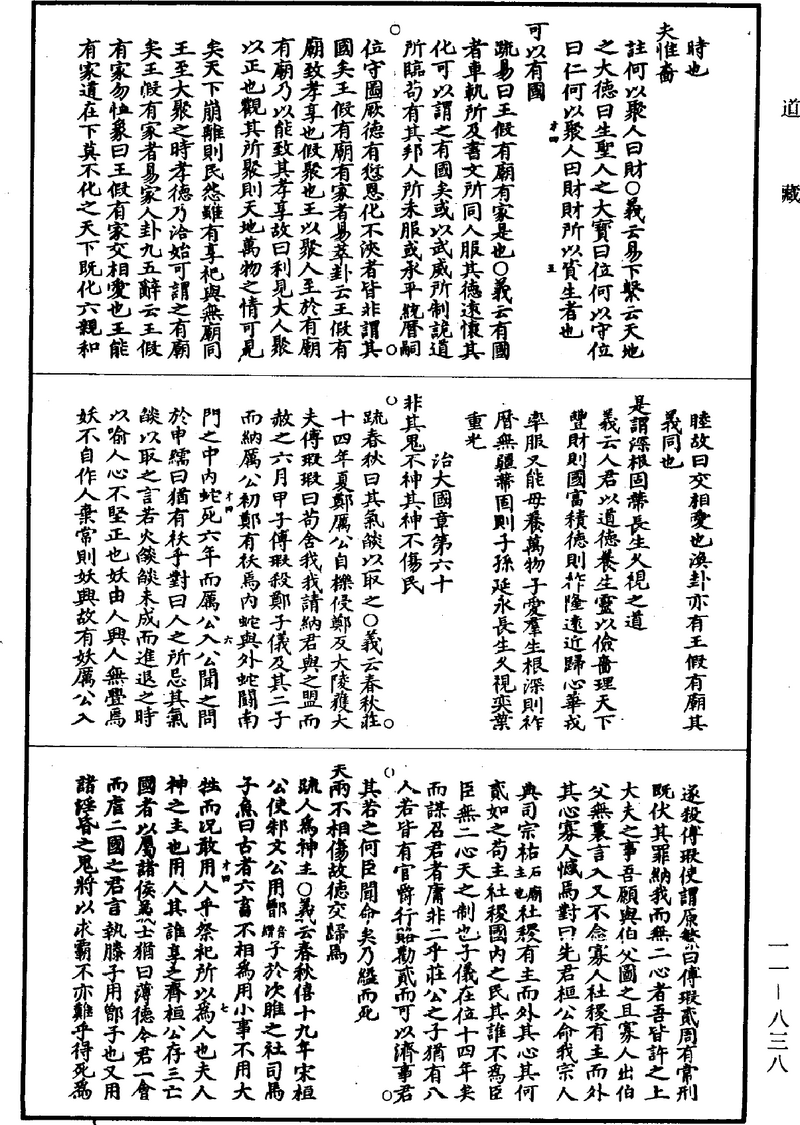 道藏
時也
夫惟嗇
註何以聚人曰財○義云易下繫云天地
之大德曰生聖人之大寶曰位何以守位
曰仁何以聚人曰財財所以資生者也
可以有國
疏易曰王假有廟有家是也○義云有國
者車軌所及書文所同人服其德遠懷其
化可以謂之有國矣或以武威所制詭道
所臨苟有其邦人所未服或承平統曆嗣
位守國厥德有愆恩化不浹者皆非謂其
國矣王假有廟有家者易萃卦云王假有
廟致孝享也假聚也王以聚人至於有廟
有廟乃以能致其孝享故曰利見大人聚
以正也觀其所聚則天地萬物之情可見
矣天下崩離則民怨雖有享祀與無廟同
王至大聚之時孝德乃洽始可謂之有廟
矣王假有家者易家人卦九五辭云王假
有家勿恤象曰王假有家交相愛也王能
有家道在下莫不化之天下既化六親和
睦故曰交相愛也渙卦亦有王假有廟其
義同也
是謂深根固蔕長生久視之道
義云人君以道德養生靈以儉嗇理天下
豐財則國富積德則祚隆遠近歸心華戎
率服又能毋養萬物子愛羣生根深則祚
曆無疆蔕固則子孫延永長生久視奕葉
重光
治大國章第六十
非其鬼不神其神不傷民
疏春秋曰其氣燄以取之○義云春秋莊
十四年夏鄭厲公自櫟侵鄭及大陵獲大
夫傅瑕瑕曰苟舍我我請納君與之盟而
赦之六月甲子傅瑕殺鄭子儀及其二子
而納厲公初鄭有妖焉內蛇與外蛇鬪南
門之中內蛇死六年而厲公入公聞之問
於申繻曰猶有妖乎對曰人之所忌其氣
燄以取之言若火燄燄未成而進退之時
以喻人心不堅正也妖由人興人無舋焉
妖不自作人棄常則妖興故有妖厲公入
遂殺傅瑕使謂原繁曰傅瑕貳周有常刑
既伏其罪納我而無二心者吾皆許之上
大夫之事吾願與伯父圖之且寡人出伯
父無裏言入又不念寡人社稷有主而外
其心寡人憾焉對曰先君桓公命我宗人
典司宗祏石廟主也社稷有主而外其心其何
貳如之苟主社稷國內之民其誰不為臣
臣無二心天之制也子儀在位十四年矣
而謀召君者庸非二乎莊公之子猶有八
人若皆有官爵行賂勸貳而可以濟事君
其若之何臣聞命矣乃縊而死
天兩不相傷故德交歸焉
疏人為神主○義云春秋僖十九年宋桓
公使邾文公用鄫子於次睢之社司馬
子魚曰古者六畜不相為用小事不用大
牲而況敢用人乎祭祀所以為人也夫人
神之主也用人其誰享之齊桓公存三亡
國者以屬諸侯義士猶曰薄德今君一會
而虐二國之君言執滕子用鄫子也又用
諸淫昏之鬼將以求霸不亦難乎得死為
一一—八三八